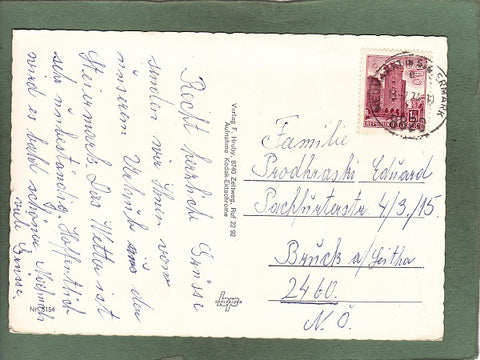 Recht herzliche Grüsse
senden wir Ihnen vom
unserem Urlaub aus der
Steiermark. Das Wetter ist
sehr unbeständig. Hoffentlich
wird es bald schöner. Nochmals
viele Grüsse
Verlag F. Hruby, 8740 Zeltweg, Ruf 22 92
Aufnahme Kodak-Ektachrome
REPUBLIK
Familie
Prodhraski Eduard
Pachfurterstr. 4/3/15.
Bruck a/Leitha
2460.
N.Ö.